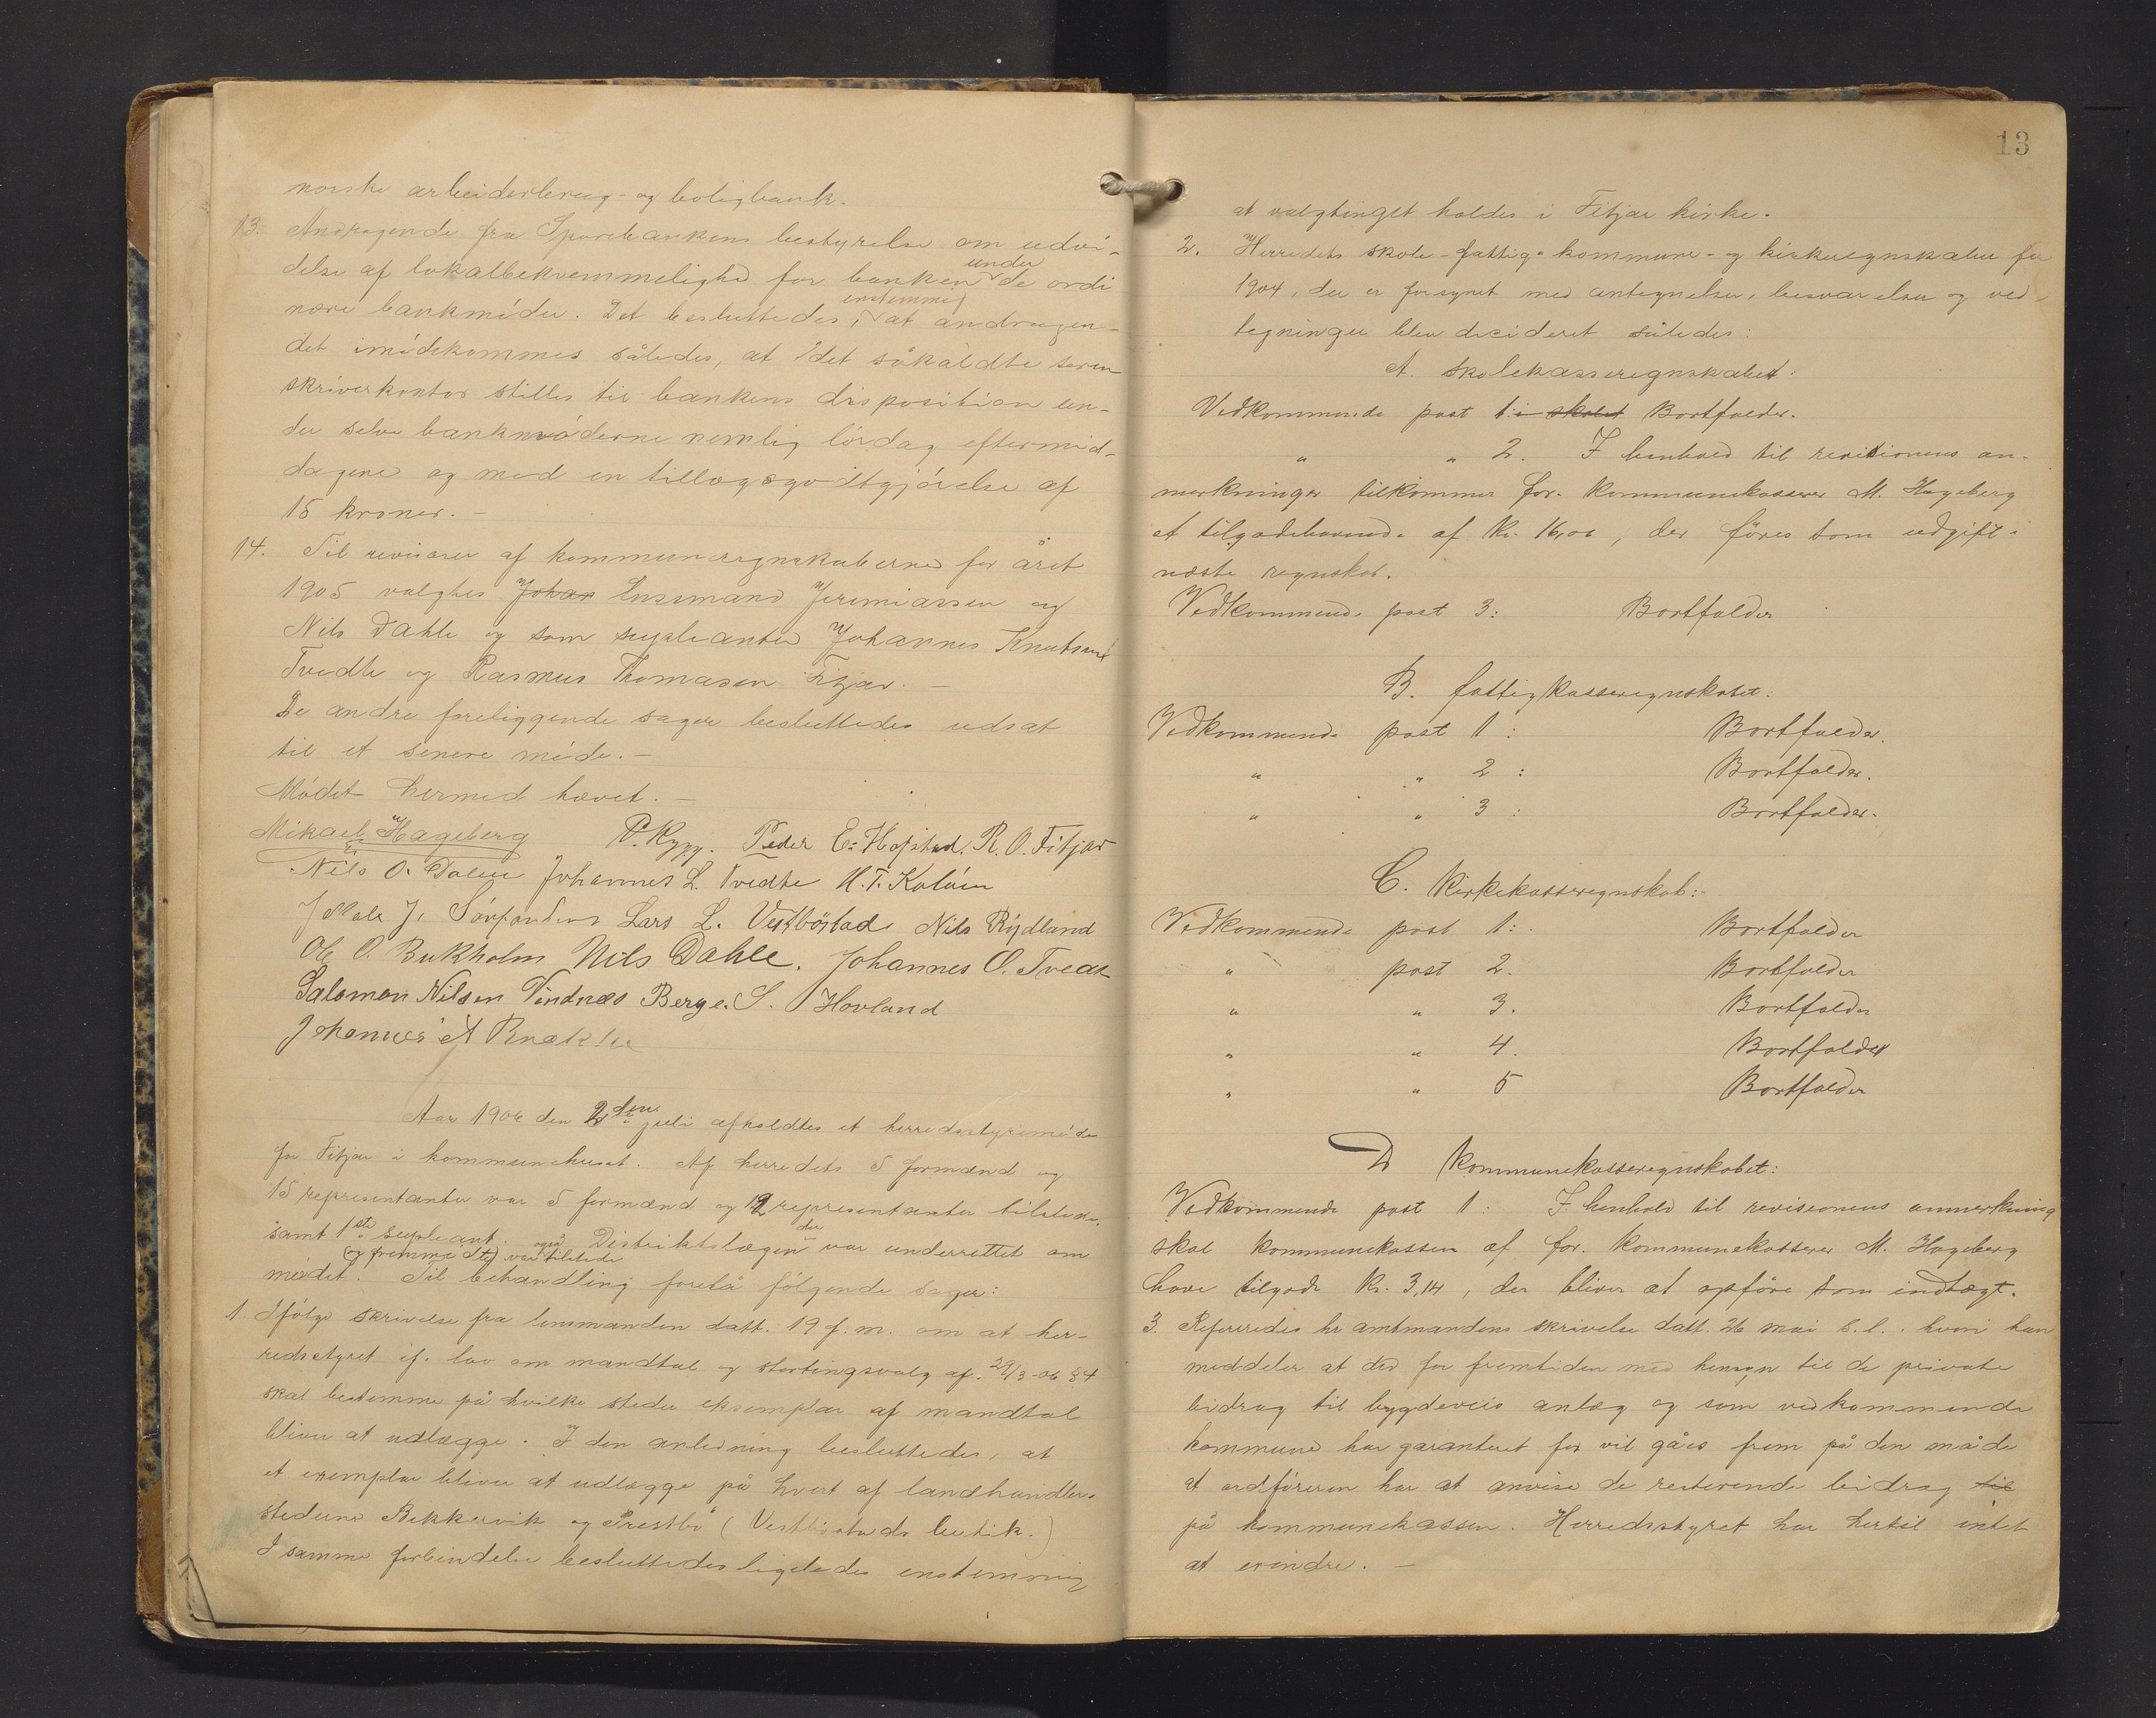 norske arbeiderbrug- og boligbank.
13. Andragende fra Sparebankens bestyrelse om udvi-
delse af lokalbekvemmelighed for banken under de ordi
nære bankmöder. Det besluttedes, enstemmig at andragen-
det imödekommes således, at det såkaldte soren
skriverkontor stilles til bankens disposition un-
der selve bankmöderne nemlig lördag eftermid-
dagene og mod en tillægsgodtgjörelse af
15 kroner. —
14. Til revisorer af kommuneregnskaberne for året
1905 valgtes Johan Ensemand Jeremiassen og
Nils Dahle og som supleanter Johannes Knutsen
Tvedte og Rasmus Thomasen Fitjar. —
De andre foreliggende sager besluttedes udsat
til et senere möde. —
Mödet hermed hævet. —
Mikael Hageberg P. Rygg. Peder E. Hofstad. R. O. Fitjar
Nils O. Dalen Johannes L. Tvedte H. T. Koløen
J. Sörfonden Lars L. Vestböstad Nils Rydland
Ole O. Bukholm Nils Dahle. Johannes O. Tvedt
Salomon Nilsen Vindnæs Berge S. Hovland
Johannes A
Aar 1906 den 2den juli afholdtes et herredsstyremöde
for Fitjar i kommunehuset. Af herredets 5 formænd og
15 representanter var 5 formænd og 12 representanter tilstede.
samt 1ste supleant. også Distriktslægen der var underrettet om
mödet. (og fremmødte) var tilstede Til behandling forelå fölgende sager:
1. Ifölge skrivelse fra lensmanden datt. 19 f. m. om at her-
redsstyret if. lov om mandtal og stortingsvalg af. 29/3-06 § 4
skal bestemme på hvilke steder eksemplar af mandtal
bliver at udlægge. I den anledning besluttedes, at
et exemplar bliver at udlægge på hvert af landhandler-
stederne Bekkervik og Prestbö (Vestböstads butik.)
I samme forbindelse besluttedes ligeledes enstemmig
13
at valgtinget holdes i Fitjar kirke.
2. Herredets skole- fattig- kommune- og kirkeregnskaber for
1904, der er forsynet med antegnelser, besvarelser og ved-
tegninger blev decideret således:
A. Skolekasseregnskabet:
Vedkommende post 1: i skolet Bortfalder.
" " 2. I henhold til revisionens an-
merkninger tilkommer for. kommunekasserer M. Hageberg
et tilgodehavende af Kr. 16,06, der föres som udgift i
næste regnskab.
Vedkommende post 3: Bortfalder
B. fattigkasseregnskabet:
Vedkommende post 1: Bortfalder.
" " 2: Bortfalder.
" " 3: Bortfalder.
C. Kirkekasseregnskab:
Vedkommende post 1: Bortfalder
" post 2. Bortfalder
" " 3. Bortfalder
" " 4. Bortfalder
" " 5 Bortfalder
D kommunekasseregnskabet:
Vedkommende post 1: I henhold til revisionens anmerkning
skal kommunekassen af for. kommunekasserer M. Hageberg
have tilgode Kr. 3,14, der bliver at opföre som indtægt.
3. Refereredes hr amtmandens skrivelse datt. 26 mai s. l. hvori han
meddeler at der for fremtiden med hensyn til de private
bidrag til bygdeveis anlæg og som vedkommende
kommune har garanteret for vil gåes frem på den måde
at ordföreren har at anvise de resterende bidrag til
på kommunekassen. Herredsstyret har hertil intet
at erindre. —